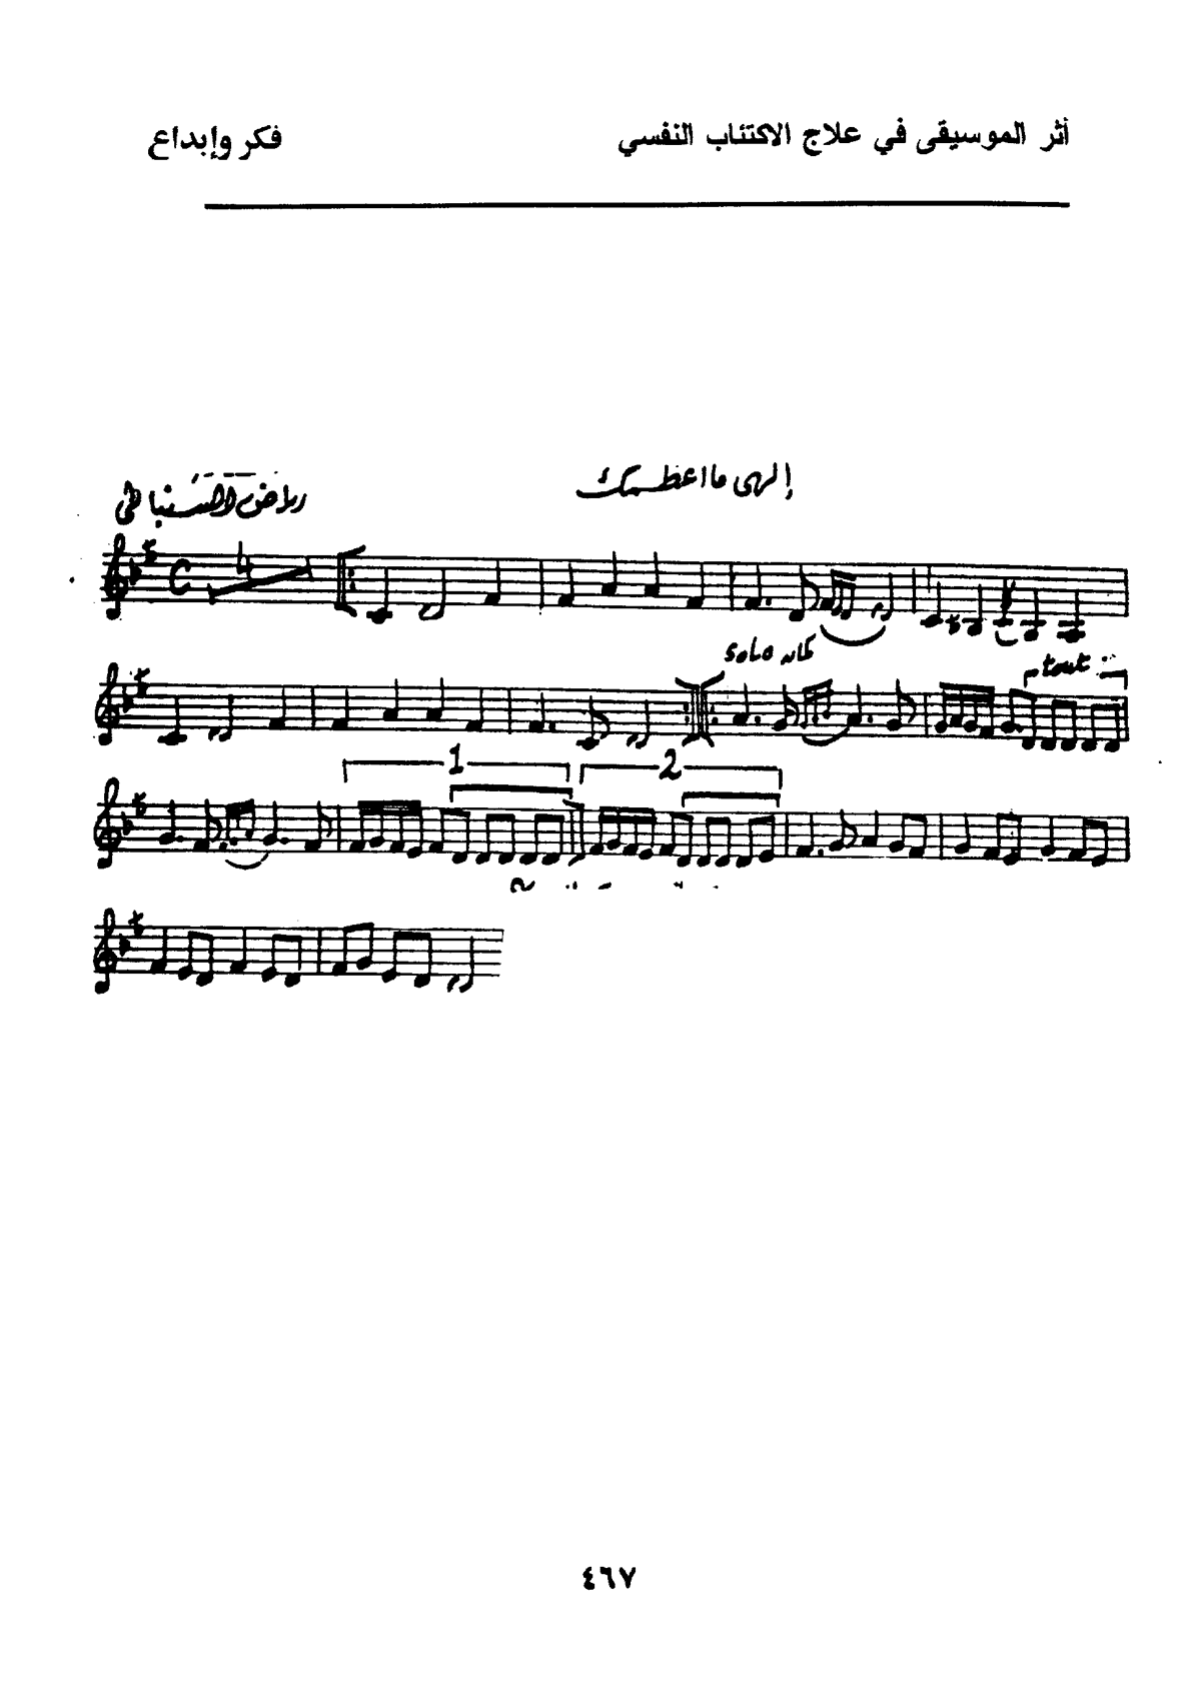 أثر الموسيقى في علاج الاكتئاب النفسي
فكر وإبداع
إلهى ما اعظمك
رياض السنباطى
4
solo كمان
tout
1
2
٤٦٧